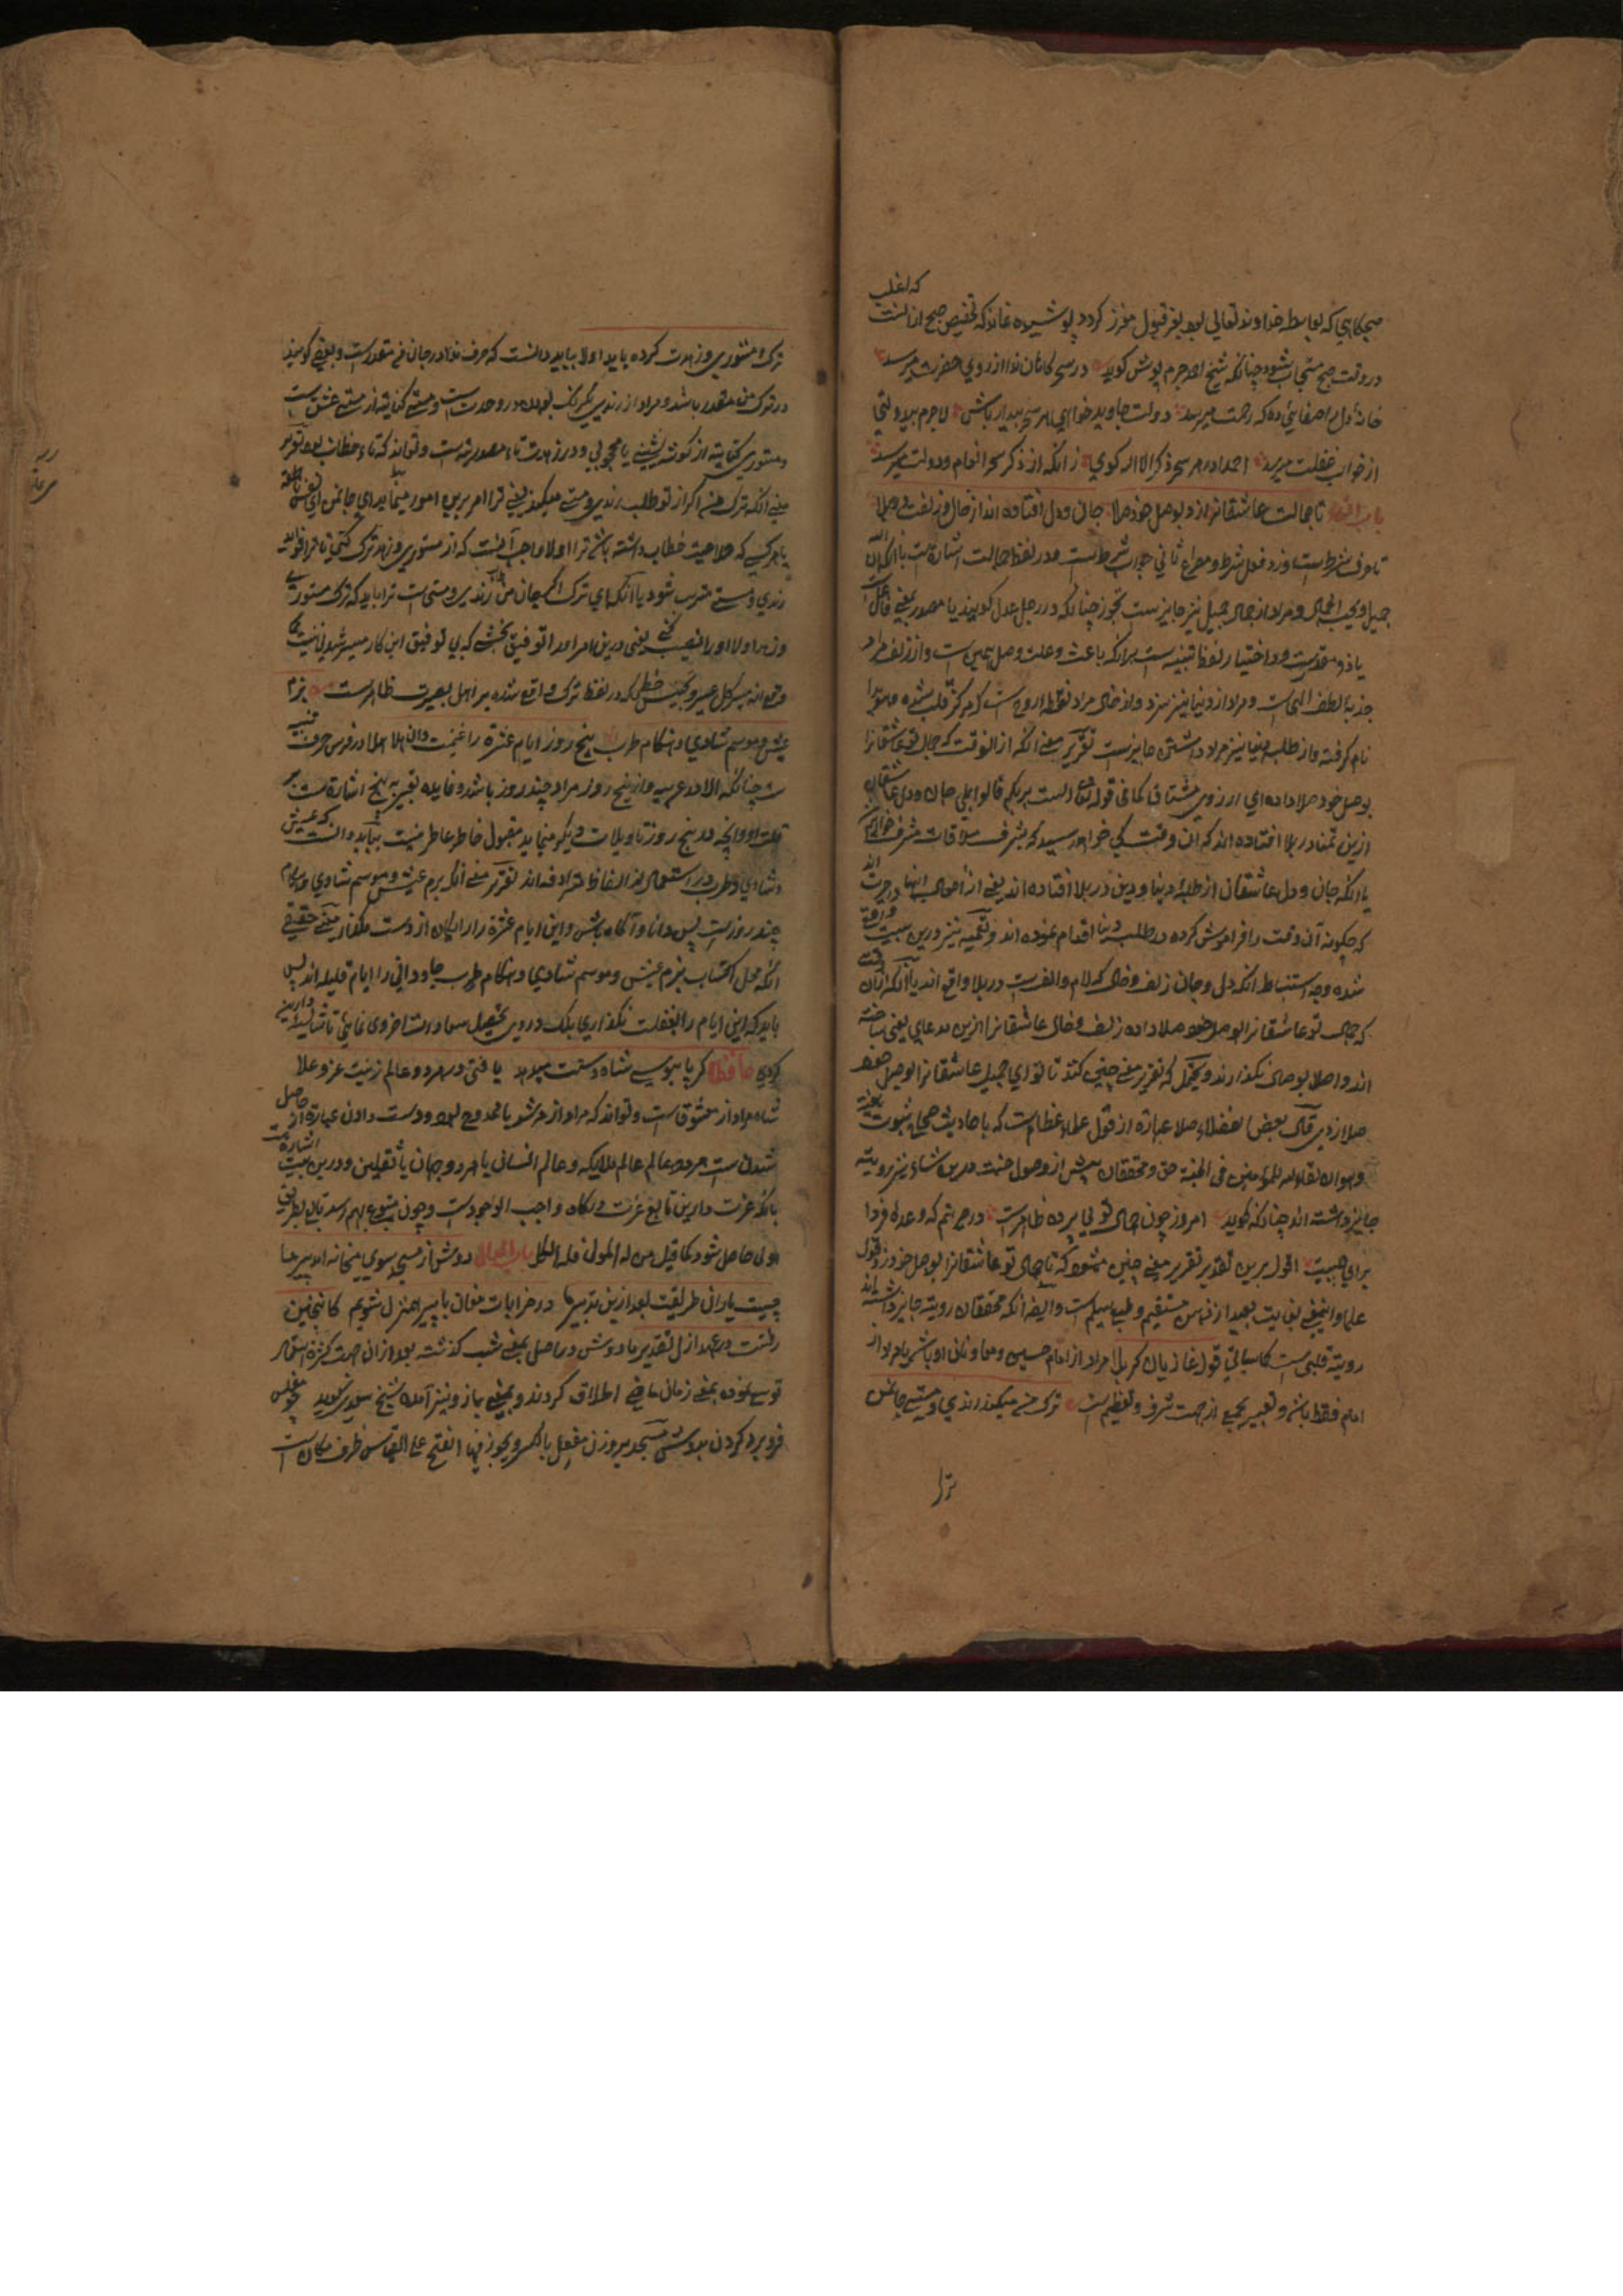 که اغلب
صبحگاهی که بواسطه خداوند تعالی بود بغیر قبول مقرر گردد پوشیده نماند که تخصیص صبح از آنست
در وقت صبح مستجاب شود چنانکه شیخ احمد جرم پوش گوید در سحرگاهان ندا از روی حضرت میرسد
خانه دل را صفائی ده که رحمت میرسد دولت جاوید خواهی هر سحر بیدار باش لاجرم بیدولتی
از خواب غفلت میرسد احمدا در هر سحر ذکر الا الله گوی زانکه از ذکر سحر انعام و دولت میرسد
تا جمالت عاشقانرا زد بوصل خود صلا جان و دل افتاده اند از خال و زلفت در بلا
تا حرف شرط است و زد فعل شرط و مصراع ثانی جواب شرط است و در لفظ جمالت اشارتست بآنکه ان الله
جمیل و یحب الجمال و مراد از جمال جمیل نیز جایز است تجوز چنانکه در رجل عدل گویند یا مصدر بمعنی فاعل است
یا ذو مقدرست و در اختیار لفظ تنبیه است برانکه باعث و علت وصل همین است و از زلف مراد
جذبه الطف الهی است و مراد از دنیا نیز سزد و از خال مراد نقطه روح است که مرکز قلب شده
نام گرفته و از طلب دنیا نیز مراد داشتن جایزست تقریر معنی آنکه از الوقت که جمال تو عاشقانرا
بوصل خود صلا داده ای ارزوی مشتاق کما فی قوله تعالی الست بربکم قالوا بلی جان و دل عاشقان
ازین تمنا در بلا افتاده اند که ان وقت کی خواهد رسید که بشرف ملاقات مشرف خواهیم
یا آنکه جان و دل عاشقان از طلب دنیا و دین در بلا افتاده اند یعنی از احوال انها در حیرت اند
که چگونه آن وقت را فراموش کرده در طلب دنیا اقدام نموده اند و تعمیه نیز درین بیت واقع
شده وجه استنباط آنکه دل و جان زلف و خال که لام و الف است در بلا واقع اند یا آنکه
که جمال تو عاشقانرا بوصل خود صلا داده زلف و خال عاشقانرا ازین مدعای یعنی
اند و اصلا بوصال نگذارند و یحتمل که تقریر معنی چنین کنند تا تو ای جمیل عاشقانرا بوصل خود
صلا زدی قال بعض الفضلاء صلا عبارة از قول علماء عظام است که باحادیث صحاح بثبوت
وهو ان لقاء الله للمؤمنین فی الجنة حق و محققان پیش از وصول جنت درین نشاء نیز رویت
جایز داشته اند چنانکه گوید امروز چون جمال تو بی پرده ظاهرست در حیرتم که وعده فردا
برای چیست اقول برین تقدیر تقریر معنی چنین میشود که تا جمال تو عاشقانرا بوصل خود زد قول
علما و اینمعنی بغایت بعید از فهم مستقیم و طبع سلیم است و ایضا آنکه محققان رویت جایز داشته اند
رویت قلبی است کما سیاتی قوله غازیان کربلا مراد از امام حسین و معاونان او باشد یا مراد از
امام فقط باشد و تعبیر بجمع از جهت شرف و تعظیم است ترک من میکند رندی و مستی جان من
ترا
ترک مستوری و زهدت کرده باید اولا بباید دانست که حرف ندا در جان من مقدرست و بعضی گویند
در ترک من مقدر باشد و مراد از رندی یکرنگ بودن در وحدت است و مستی کنایة از مستی عشق است
و مستوری کنایة از گوشه نشینی یا محجوبی و در زهدت تاء مصدریه است و تواند که تاء خطاب بود تقریر
معنی آنکه ترک من اگر از تو طلب رندی و مستی میکند یعنی ترا امر برین امور مینماید ای جان من ای نفس ناطقه
یا هر کسی که صلاحیت خطاب داشته باشد ترا اولا واجب آنست که از مستوری و زهد ترک کنی تا ترا فوائد
رندی و مستی مترتب شود یا آنکه ای ترک اگر جان من رندی و مستی است ترا باید که ترک مستوری
و زهد اولا او را نصیب کنی یعنی درین امر او را توفیق بخش که بی توفیق این کار میسر شدنی نیست
و تجنیس خطی که در لفظ ترک واقع شده بر اهل بصیرت ظاهر است بزم
عیش و موسم شادی و هنگام طرب پنج روز ایام عشرة را غنیمت دان هلا هلا در فرس حرف تنبیه
ست چنانکه الا در عربیه و از پنج روز مراد چند روز باشد و فایده تعبیر به پنج اشارة است بر
قلت او و آنچه در پنج روز تاویلات دیگر مینماید مقبول خاطر عاطر نیست بباید دانست که عیش
و شادی و طرب در استعمال این الفاظ مترادفه اند تقریر معنی آنکه بزم عیش و موسم شادی و هنگام
چند روزست پس دانا و آگاه باش و این ایام عشرة را رایگان از دست مگذار یعنی حقیقی
آنکه محل اکتساب بزم عیش و موسم شادی و هنگام طرب جاودانی را ایام قلیله اند پس
باید که این ایام را بغفلت نگذاری بلکه در وی تحصیل سعادت اخروی نمائی تا شایسته دارین
گردی حافظا گر پا بوس شاه دستت میدهد یافتی در هر دو عالم زینت عز و علا
شاه مراد از معشوق است و تواند که مراد از مرشد یا ممدوح بود و دست دادن عبارة از حاصل
شدن است هر دو عالم عالم ملایکه و عالم انسانی یا هر دو جهان یا ثقلین و درین بیت اشارة است
بآنکه عزت دارین تابع عزت درگاه واجب الوجودست و چون متبوع بهم رسد تابع بطریق
اولی حاصل شود کما قیل من له المولی فله الکل دوش از مسجد سوی میخانه آمد پیر ما
چیست یاران طریقت بعد ازین تدبیر ما در خرابات مغان ما با پیر همنزل شویم کاینچنین
رفتست در عهد ازل تقدیر ما دوش در اصل بمعنی شب گذشته بعد از ان جهت کثرة استعمال
توسیع نموده بمعنی زمان ماضی اطلاق کردند و بمعنی باز و نیز آمده شیخ سعدی گوید
فرو برد گردن بدوش مسجد بر وزن مفعل بالکسر و یجوز فیها الفتح علی القیاس ظرف مکان است